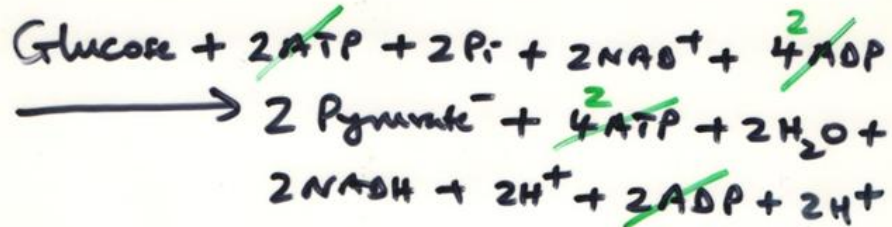 Glucose + 2ATP + 2Pi + 2NAD⁺ + 4 2 ADP
→ 2 Pyruvate⁻ + 4 2 ATP + 2H₂O +
2NADH + 2H⁺ + 2ADP + 2H⁺